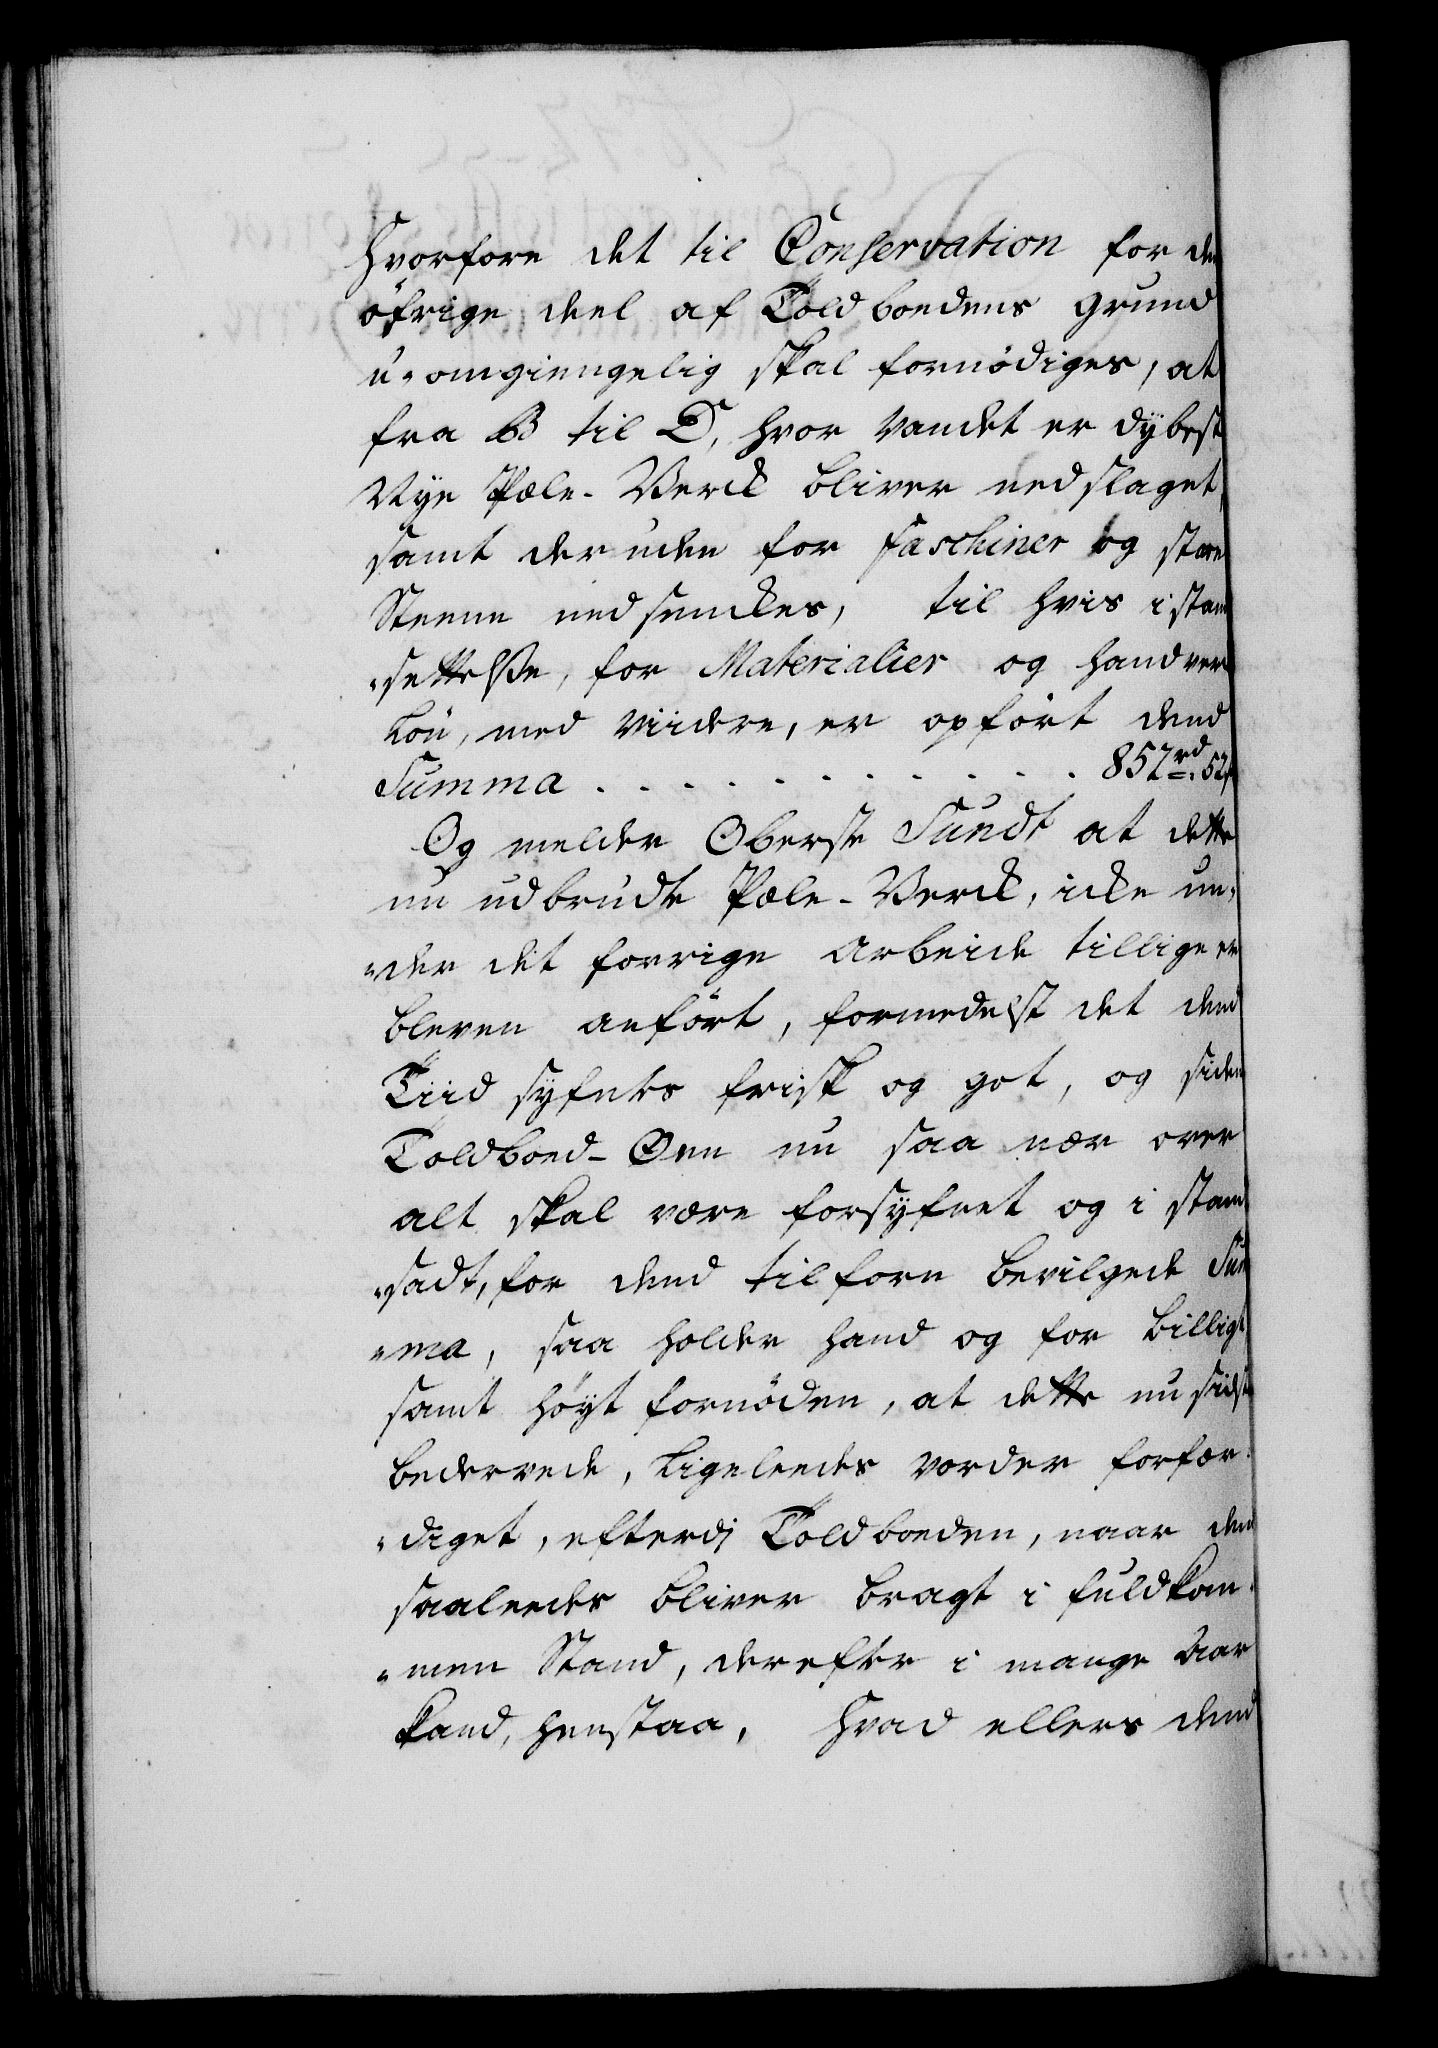 Hvorfore det til Conservation for de
öfrige deel af Toldboedens grund
u-omgiengelig skal fornödiges, at
fra B til D, hvor vandet er dybest
Nye Pæle-Verck bliver nedslaget,
samt der uden for faschiner og store
Steene nedsenckes, til hvis i stand
"settelsse, for Materialier og handver
Lön, med viidere, er opfört dend
Summa . . . . . . . . . . . . 852 rd. 52
Og melder Oberste Sundt at dette
nu udbrudte Pæle-Verck, icke un-
"der det forrige arbeide tillige er
bleven anfört, formedelst det dend
Tiid syfntes frisk og got, og siden
Toldboed-Öen nu saa nær over
alt skal være forsyfnet og i stand
"sadt, for dend tilforn bevilgede Sum
"ma, saa holder hand og for billigt
samt höyt fornöden, at dette nu sidste
bedervede, ligeleedes vorder forfær-
"diget, efterdj Toldboeden, naar den
saaleedes bliver bragt i fuldkom-
"men Stand, derefter i mange Aar
kand, henstaa, Hvad ellers dend